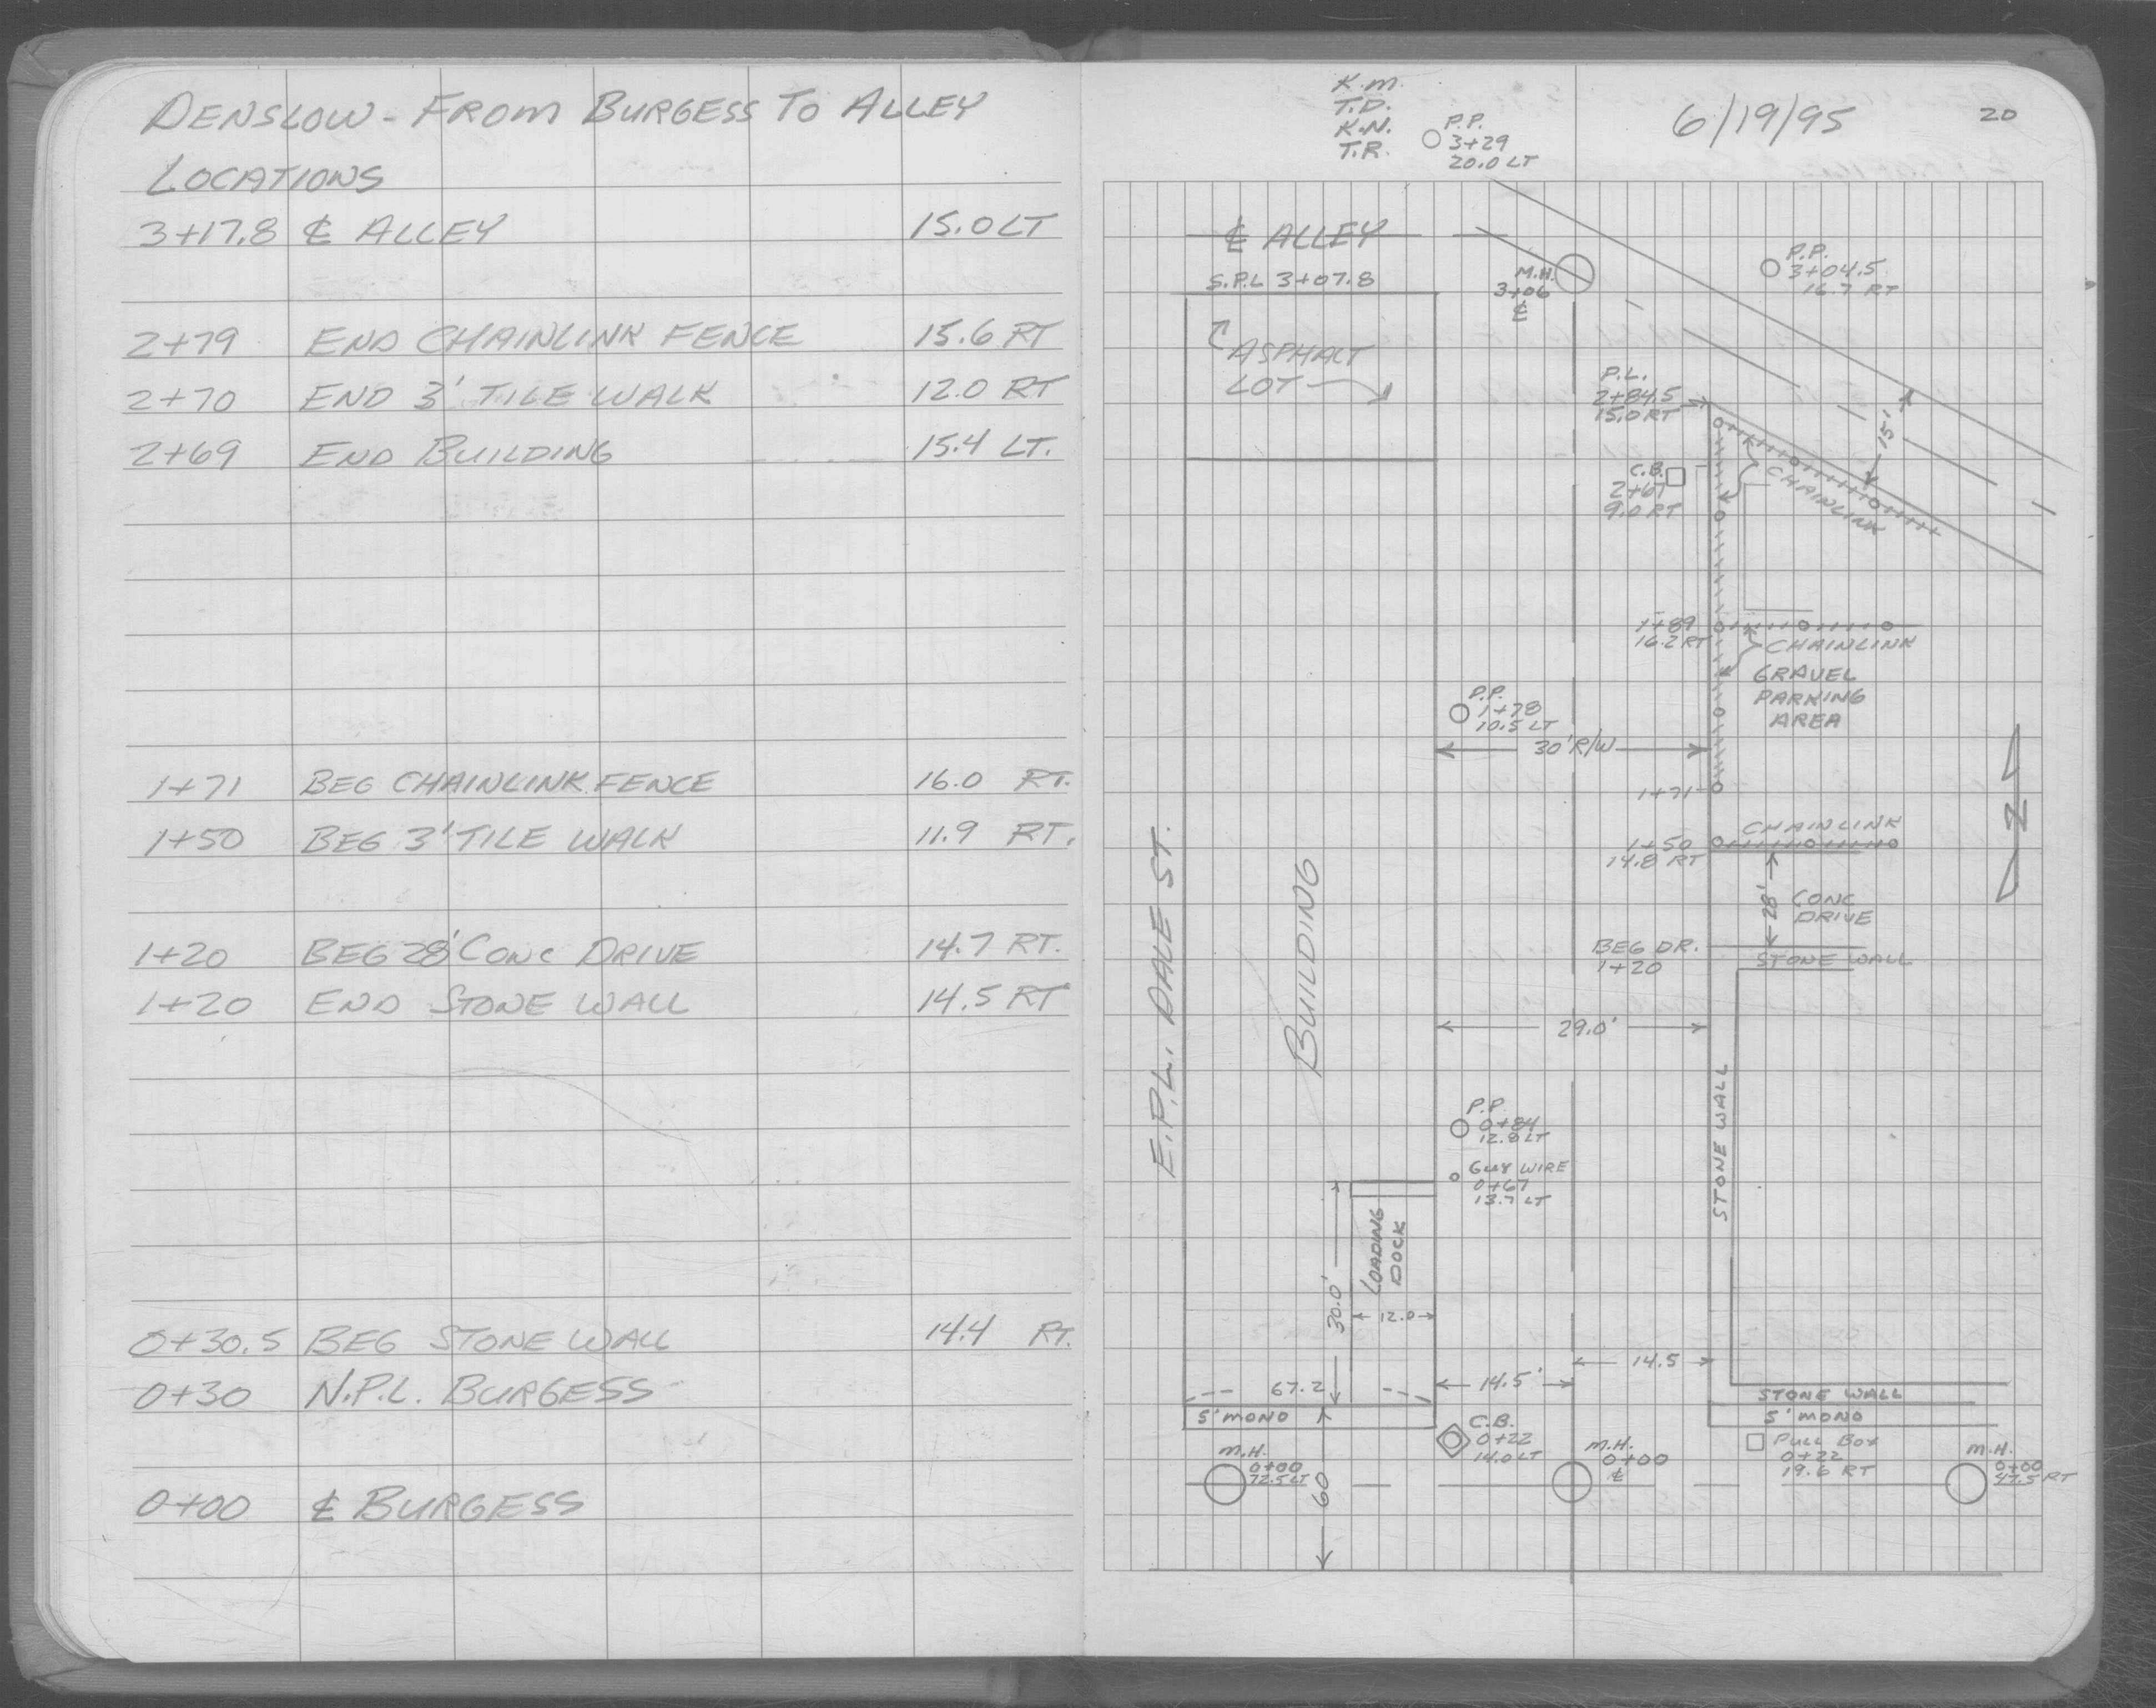 DENSLOW - FROM BURGESS TO ALLEY
LOCATIONS
3+17.8 ℄ ALLEY 15.0 LT
2+79 END CHAINLINK FENCE 15.6 RT
2+70 END 3' TILE WALK 12.0 RT
2+69 END BUILDING 15.4 LT.
1+71 BEG CHAINLINK FENCE 16.0 RT.
1+50 BEG 3' TILE WALK 11.9 RT.
1+20 BEG 28' CONC DRIVE 14.7 RT.
1+20 END STONE WALL 14.5 RT
0+30.5 BEG STONE WALL 14.4 RT.
0+30 N.P.L. BURGESS
0+00 ℄ BURGESS
K.M.
T.D.
K.N.
T.R.
P.P.
3+29
20.0 LT
6/19/95
20
℄ ALLEY
S.P.L 3+07.8
M.H.
3+06
℄
P.P.
3+04.5
16.7 RT
ASPHALT
LOT
P.L.
2+84.5
15.0 RT
15'
C.B.
2+67
9.0 RT
CHAINLINK
1+89
16.2 RT
CHAINLINK
GRAVEL
PARKING
AREA
P.P.
1+78
10.5 LT
30' R/W
1+71
N
CHAINLINK
1+50
14.8 RT
28'
CONC
DRIVE
BEG DR.
1+20
STONE WALL
E.P.L. DALE ST.
BUILDING
29.0'
P.P.
0+84
12.8 LT
GUY WIRE
0+67
13.7 LT
STONE WALL
LOADING
DOCK
30.0'
12.0
14.5
14.5'
67.2
STONE WALL
5' MONO
5' MONO
C.B.
0+22
14.0 LT
PULL BOX
0+22
19.6 RT
M.H.
0+00
72.5 LT
60
M.H.
0+00
℄
M.H.
0+00
47.5 RT